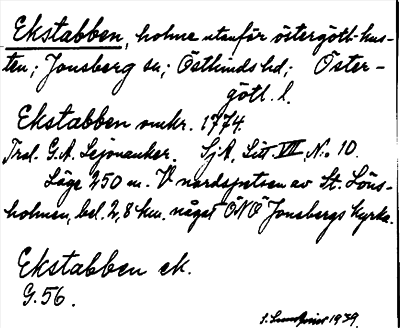 Ekstabben, holme utanför östergötl. kus-
ten; Jonsberg sn; Östkinds hd; Öster-
götl. l.
Ekstabben omkr. 1774.
Trol. G. A. Lejonanker. SjA, Litt VII No 10.
Läge 250 m. V nordspetsen av St. Löns-
holmen, bel. 2,8 km. något ÖNÖ Jonsbergs kyrka.
Ekstabben ek.
G. 56.
1939.